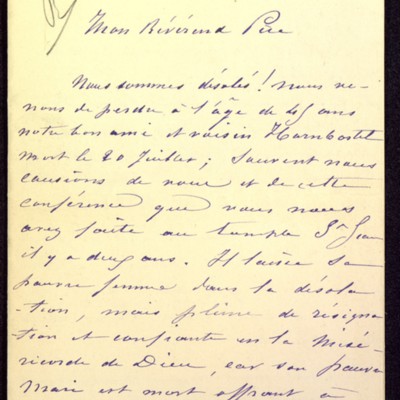 Mon Révérend Père
Nous sommes désolés! nous ve-
nons de perdre à l'âge de 45 ans
notre bon ami et voisin Hornbostel
mort le 20 Juillet; Souvent nous
causions de vous et de cette
conférence que vous nous
avez faite au temple St Jean
il y a deux ans. Il laisse sa
pauvre femme dans la désola
tion, mais pleine de résigna
tion et confiante en la Misé-
ricorde de Dieu, car son pauvre
Mari est mort offrant à